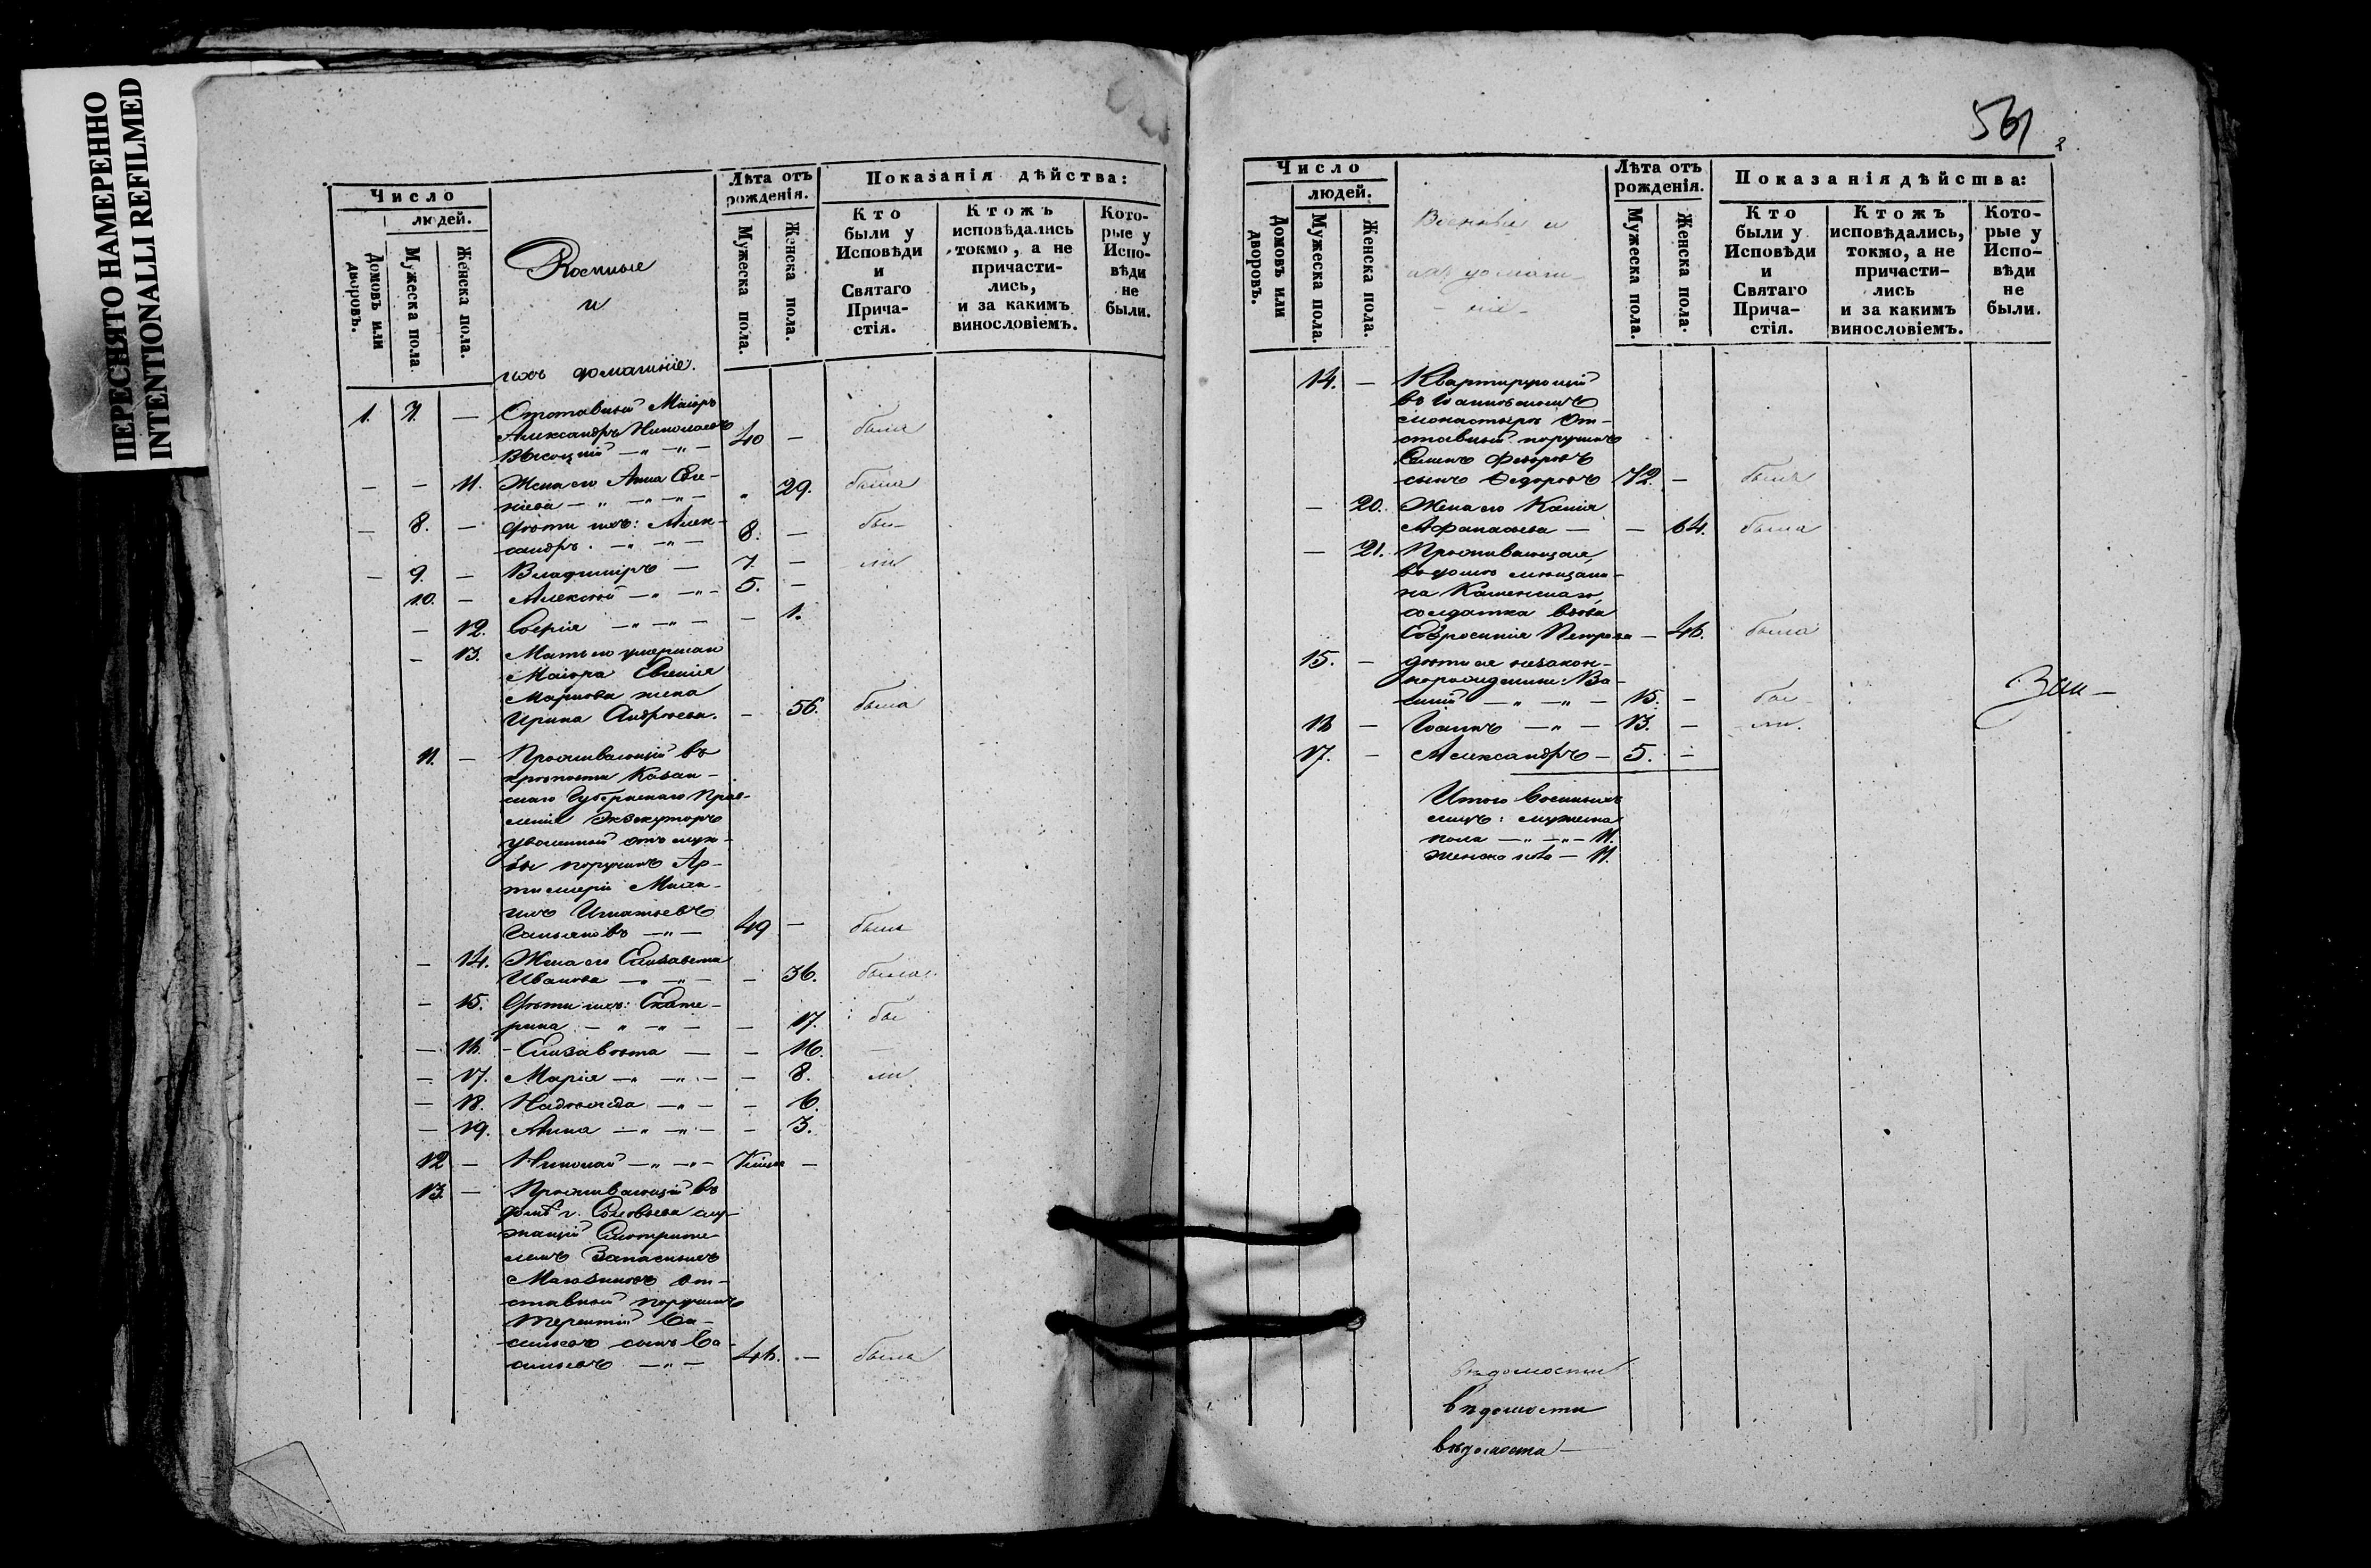 ПЕРЕСНЯТО НАМЕРЕННО
INTENTIONALLI REFILMED
Число
людей.
Домовъ или дворовъ.
Мужеска пола.
Женска пола.
Военные
и
ихъ домашніе.
Лѣта отъ рожденія.
Мужеска пола.
Женска пола.
Показанія дѣйства:
Кто были у Исповѣди и Святаго Прича-стія.
Ктожъ исповѣдались токмо, а не причасти-лись, и за какимъ винословіемъ.
Кото-рые у Испо-вѣди не были.
1. 7. — Отставный Маіоръ
Александръ Николаевъ
Высоцкій —„ —„ — 40 — былъ
— — 11. Жена его Анна Евге-
ніева —„ —„ —„ — „ 29. была
— 8. — Дѣти ихъ: Алек-
сандръ. —„ —„ — 8. — бы-
— 9. — Владиміръ — 7. — ли
10. — Алексѣй —„ —„ — 5. —
— 12. Софія —„ —„ — — 1.
— 13. Мать его умершаго
Маіора Евгенія
Маркова жена
Ирина Андреева. — 56. была
11. — Проживающій въ
крѣпости Казан-
скаго Губернскаго Прав-
ленія Экзекуторъ
уволенный отъ служ-
бы поручикъ Ар-
тиллеріи Миха-
илъ Игнатьевъ
—„ — 49 — былъ
— 14. Жена его Елизавета
Иванова —„ —„ — — 36. была.
— 15. Дѣти ихъ: Екате-
рина — „ —„ — — 17. бы
— 16. Елизавета — — 16.
— 17. Марія —„ —„ — — 8. ли
— 18. Надежда —„ — — 6.
— 19. Анна —„ —„ — — 3.
12 — Николай —„ —„ — —
13. — Проживающій въ
домѣ г. Соловьева слу-
жащій Смотрите-
лемъ Запасныхъ
Магазиновъ от-
ставный поручикъ
Терентій Ва-
сильевъ сынъ Ва-
сильевъ —„ — 46. — былъ
561
Число
людей.
Домовъ или дворовъ.
Мужеска пола.
Женска пола.
Военные и
ихъ домаш-
- ніе -
Лѣта отъ рожденія.
Мужеска пола.
Женска пола.
Показанія дѣйства:
Кто были у Исповѣди и Святаго Прича-стія.
Ктожъ исповѣдались, токмо, а не причасти-лись и за какимъ винословіемъ.
Кото-рые у Испо-вѣди не были.
14. — Квартирующій
въ Іоанновскомъ
монастырѣ От-
ставный поручикъ
Семенъ Федоровъ
сынъ Федоровъ 72. — былъ
— 20. Жена его Ксенія
Афанасьева — — 64. была
— 21. Проживающая
въ домѣ мѣщани-
на Каменскаго,
солдатка вдова
Евфросинія Петрова — 46. была
15. — Дѣти ея незакон-
норожденные: Ва-
силій —„ —„ — 15. — бы
16 — Іоаннъ —„ — 13. — ли.
17. — Александръ — 5. —
Итого военныхъ
лицъ: мужеска
пола —„ —„ — 17.
женска пола — 21.
вѣдомости
вѣдомости
вѣдомости —